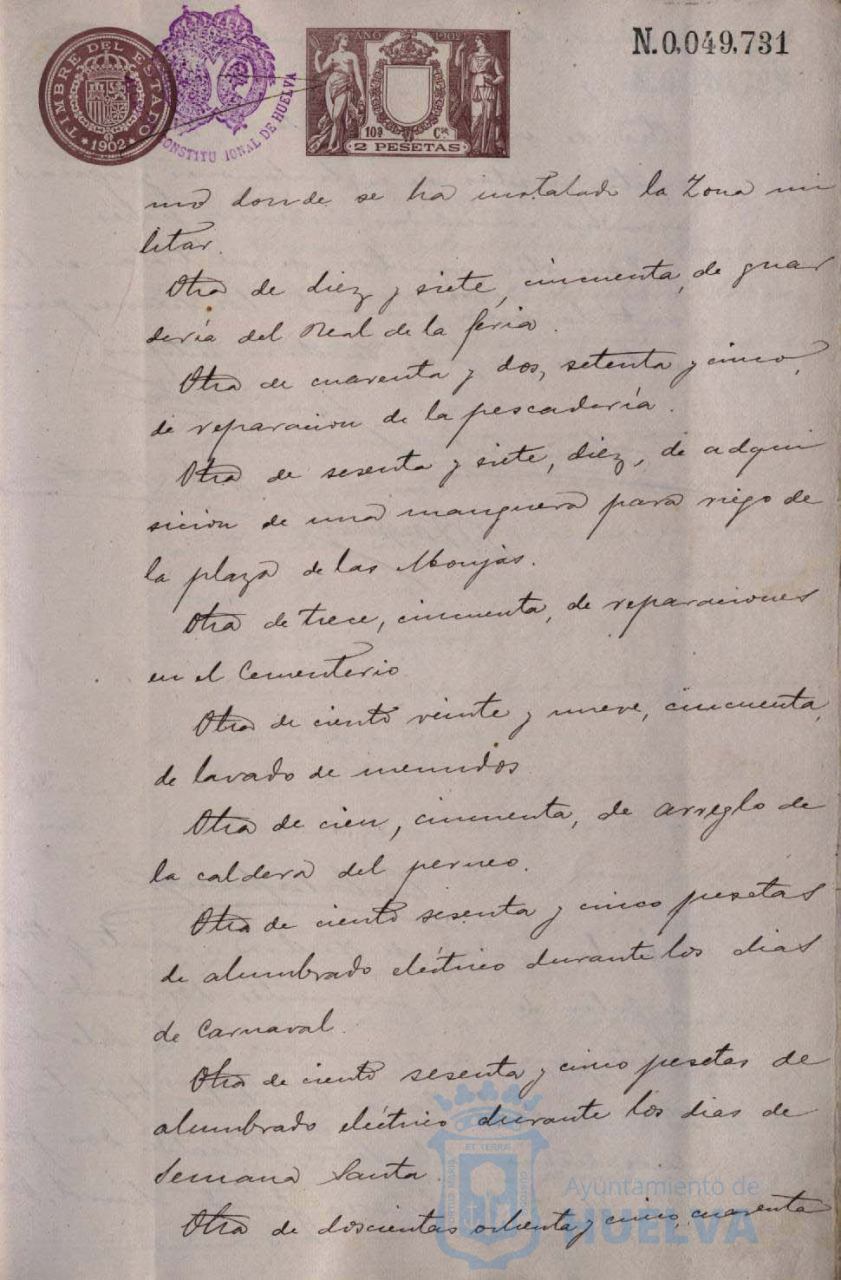 TIMBRE DEL ESTADO
1902
CONSTITUCIONAL DE HUELVA
AÑO 1902
10ª Cse
2 PESETAS
N.0,049.731
mo donde se ha instalado la Zona mi
litar.
Otra de diez y siete, cincuenta, de guar
dería del Real de la feria.
Otra de cuarenta y dos, setenta y cinco,
de reparacion de la pescadería.
Otra de sesenta y siete, diez, de adqui
sicion de una manguera para riego de
la plaza de las Monjas.
Otra de trece, cincuenta, de reparaciones
en el Cementerio
Otra de ciento veinte y nueve, cincuenta,
de lavado de menudos
Otra de cien, cincuenta, de arreglo de
la caldera del perneo.
Otra de ciento sesenta y cinco pesetas
de alumbrado eléctrico durante los dias
de Carnaval.
Otra de ciento sesenta y cinco pesetas de
alumbrado eléctrico durante los dias de
Semana Santa.
Otra de doscientas ochenta y cinco, cuarenta
Ayuntamiento de
HUELVA